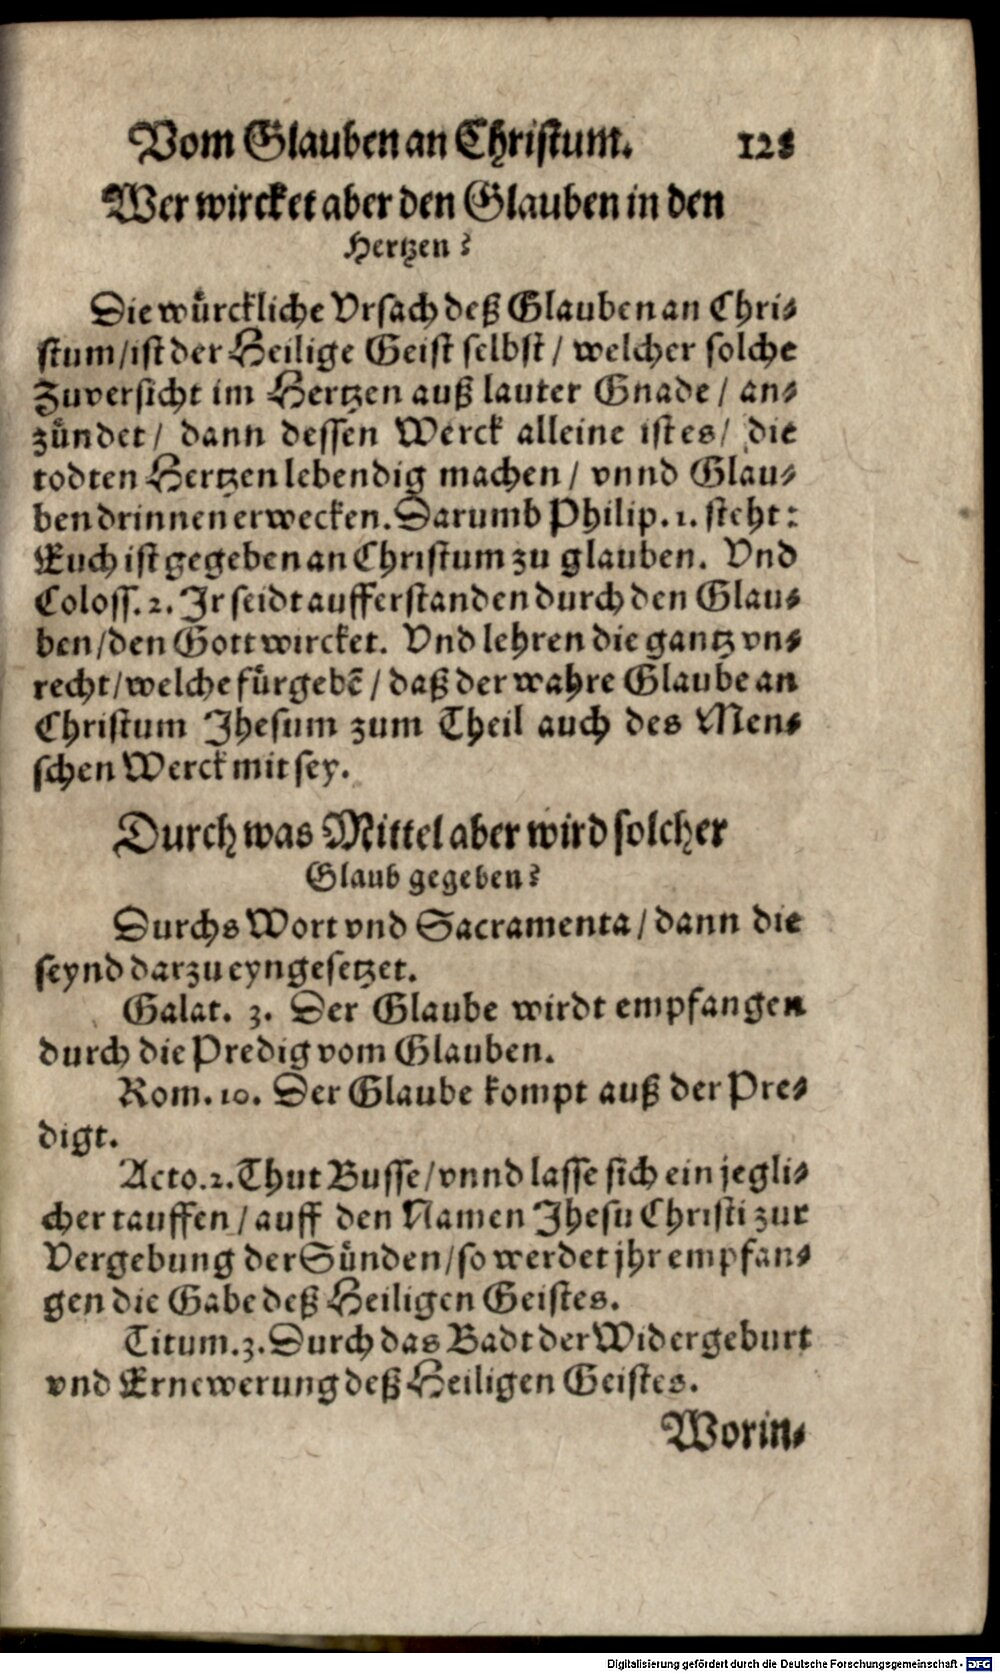 Vom Glauben an Christum. 128
Wer wircket aber den Glauben in den
Hertzen?
Die würckliche Vrsach deß Glauben an Chri⸗
stum/ist der Heilige Geist selbst / welcher solche
Zuversicht im Hertzen auß lauter Gnade / an⸗
zündet/ dann dessen Werck alleine ist es/ die
todten Hertzen lebendig machen / vnnd Glau⸗
ben drinnen erwecken. Darumb Philip. 1. steht:
Euch ist gegeben an Christum zu glauben. Vnd
Coloss. 2. Jr seidt aufferstanden durch den Glau⸗
ben/den Gott wircket. Vnd lehren die gantz vn⸗
recht/welche fürgebẽ / daß der wahre Glaube an
Christum Jhesum zum Theil auch des Men⸗
schen Werck mit sey.
Durch was Mittel aber wird solcher
Glaub gegeben?
Durchs Wort vnd Sacramenta / dann die
seynd darzu eyngesetzet.
Galat. 3. Der Glaube wirdt empfangen
durch die Predig vom Glauben.
Rom. 10. Der Glaube kompt auß der Pre⸗
digt.
Acto. 2. Thut Busse/vnnd lasse sich ein jegli⸗
cher tauffen/auff den Namen Jhesu Christi zur
Vergebung der Sünden/so werdet jhr empfan⸗
gen die Gabe deß Heiligen Geistes.
Titum. 3. Durch das Badt der Widergeburt
vnd Ernewerung deß Heiligen Geistes.
Worin⸗
Digitalisierung gefördert durch die Deutsche Forschungsgemeinschaft - DFG